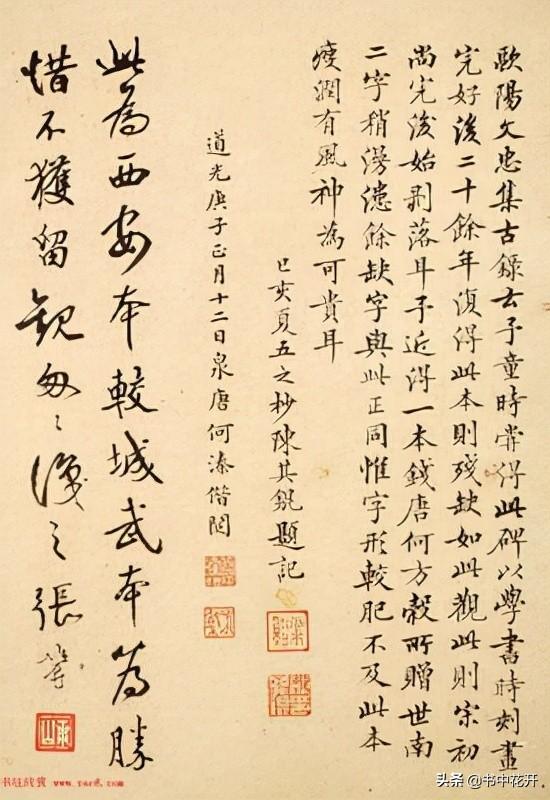 歐陽文忠集古錄云予童時嘗得此碑以學書時刻畫
完好後二十餘年復得此本則殘缺如此觀此則宋初
尚完後始剝落耳予近得一本錢唐何方穀所贈世南
二字稍漫漶餘缺字與此正同惟字形較肥不及此本
瘦潤有風神為可貴耳
己亥夏五之杪陳其錕題記
道光庚子正月十二日泉唐何溱借閱
此為西安本較城武本為勝
惜不獲留觀匆〻識之張
头条 @书中花开